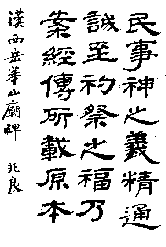 民事神之義精通
誠至礿祭之福乃
案經傳所載原本
漢西岳華山廟碑 兆良